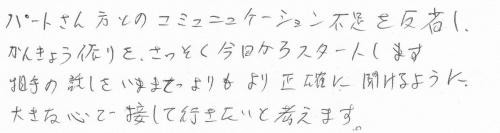 パートさん方とのコミュニュケーション不足を反省し、
かんきょう作りを、さっそく今日からスタートします
相手の話しをいままでよりもより正確に聞けるように、
大きな心で接して行きたいと考えます。